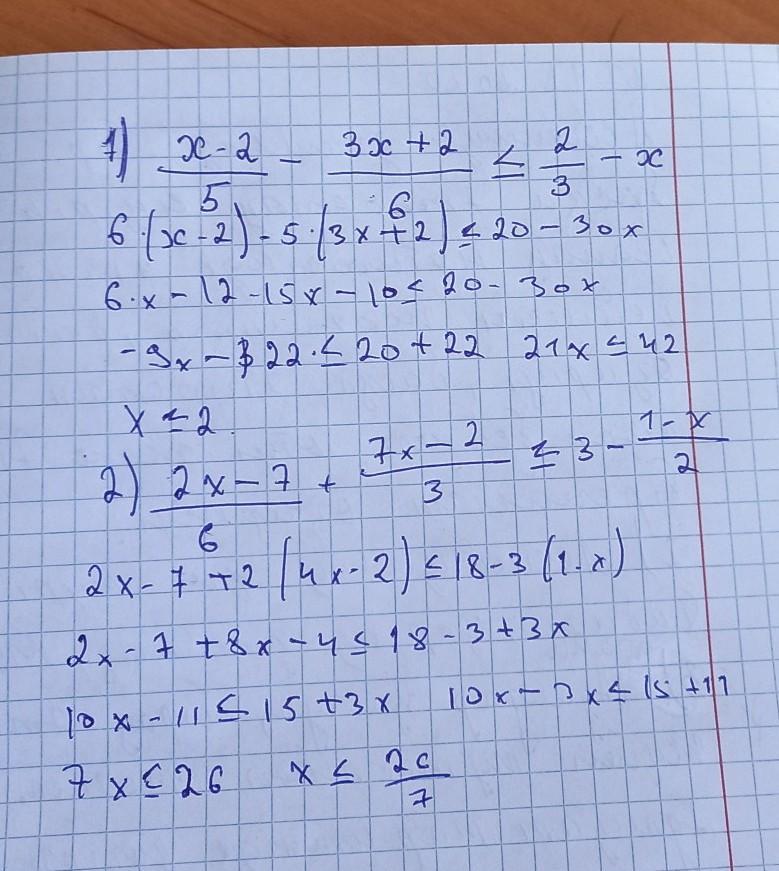 1) (x-2)/5 - (3x+2)/6 ≤ 2/3 - x
6·(x-2)-5·(3x+2)≤20-30x
6·x-12-15x-10≤20-30x
-9x-22·≤20+22 21x≤42
x≤2
2) (2x-7)/6 + (7x-2)/3 ≤ 3 - (1-x)/2
2x-7+2(4x-2)≤18-3(1-x)
2x-7+8x-4≤18-3+3x
10x-11≤15+3x 10x-3x≤15+11
7x≤26 x≤ 26/7